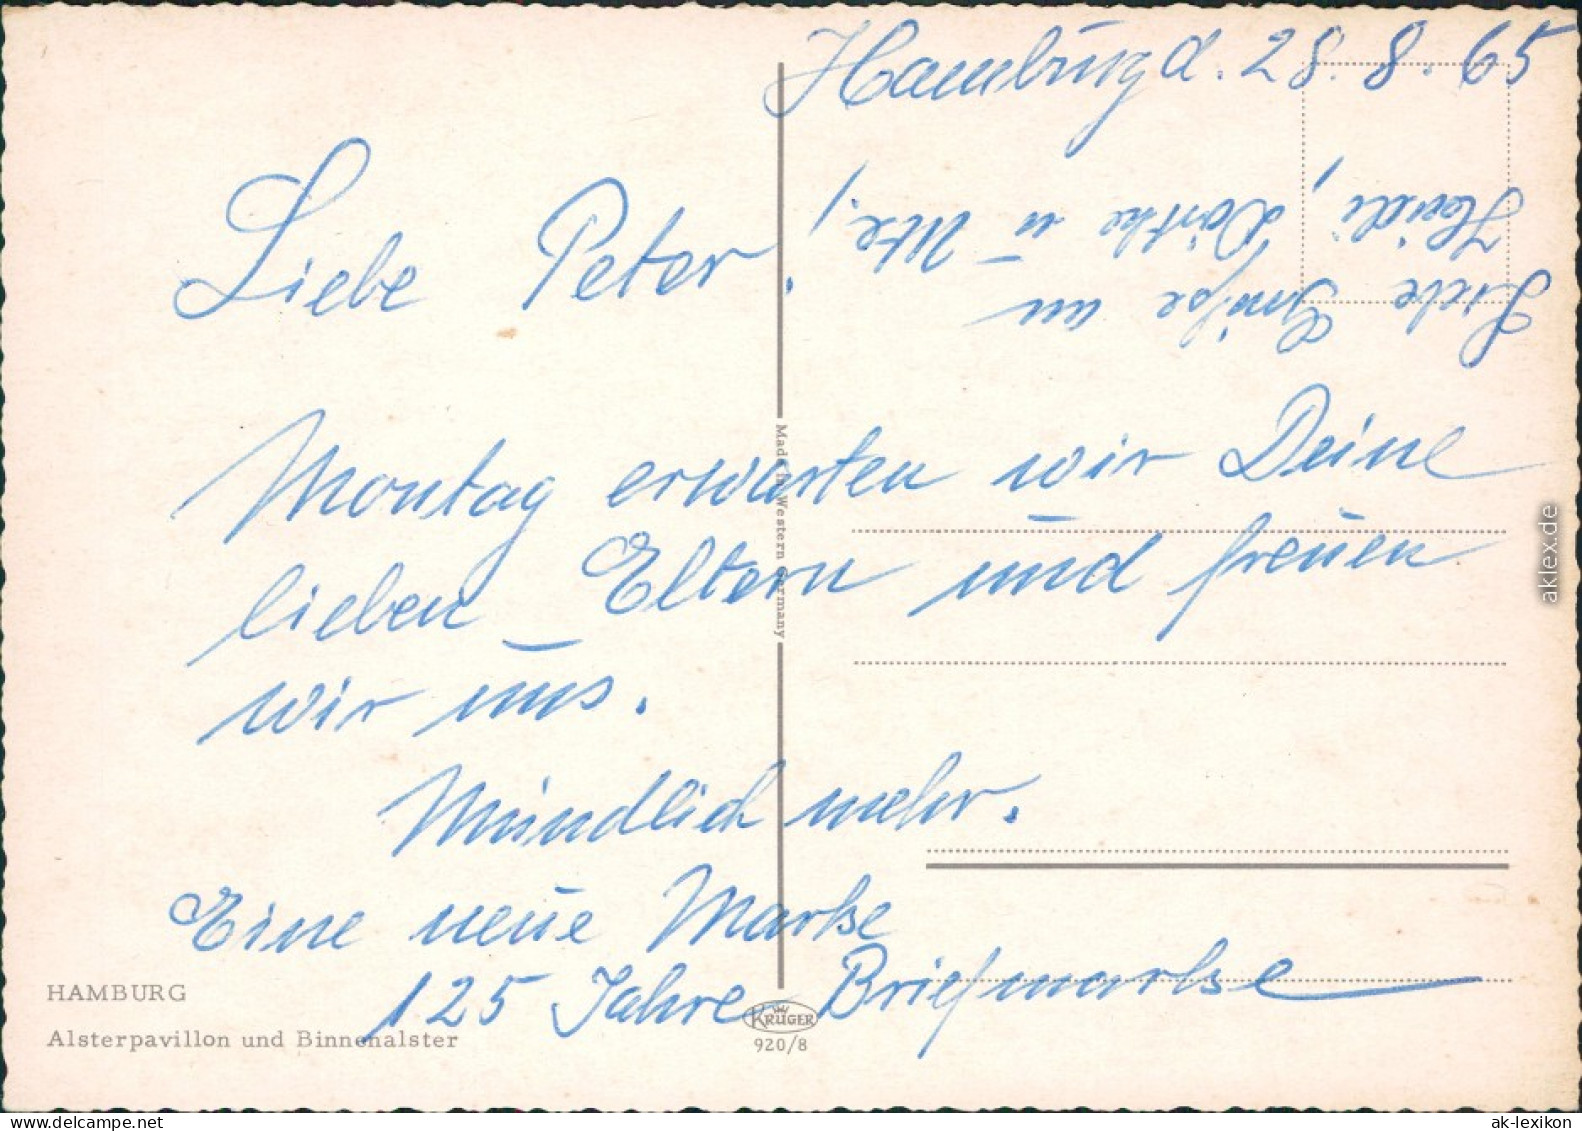 Hamburg d. 28.8.65
Liebe Peter!
Montag erwarten wir Deine
lieben Eltern und freuen
wir uns.
Mündlich mehr.
Eine neue Marke
125 Jahre Briefmarke
Liebe Grüße an
Heidi, Dörthe u Ute!
Made in Western Germany
HAMBURG
Alsterpavillon und Binnenalster
KRÜGER
920/8
aklex.de
ak-lexikon